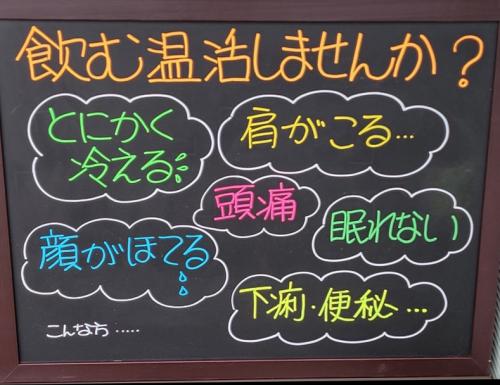 飲む温活しませんか?
とにかく
冷える
肩がこる…
頭痛
眠れない
顔がほてる
下痢・便秘…
こんな方……